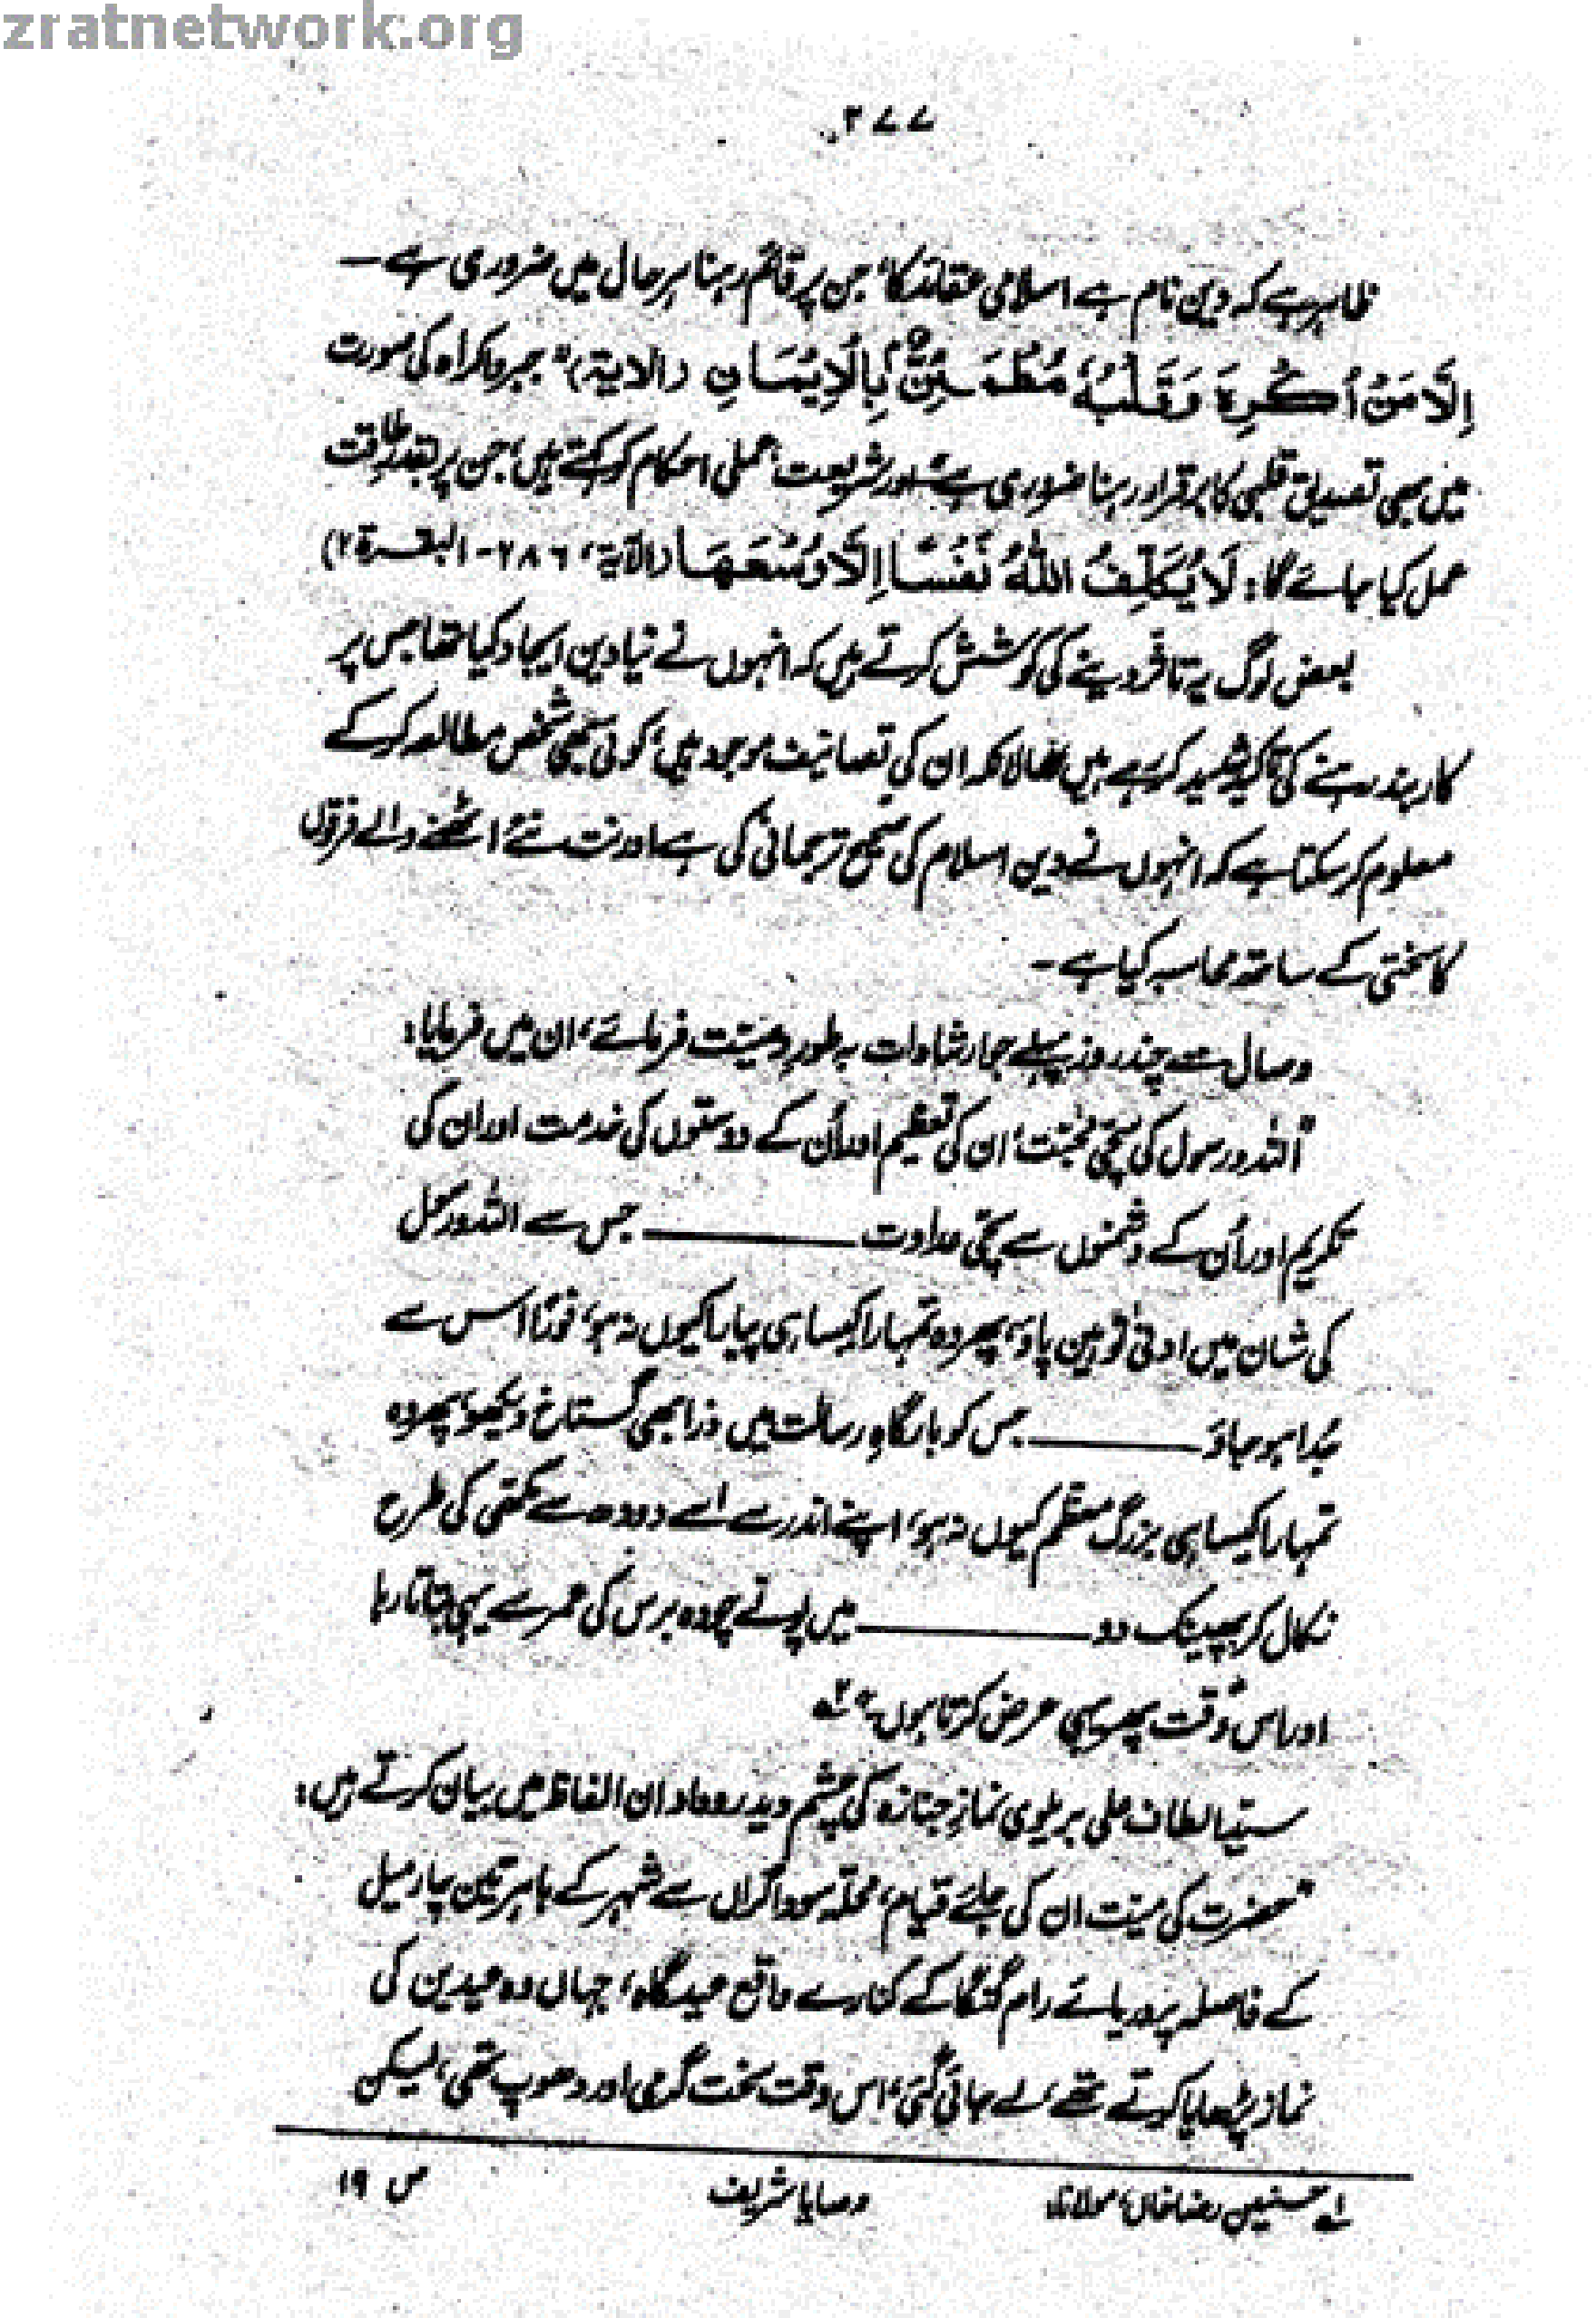 zratnetwork.org
۲۷۷
ظاہر ہے کہ دین نام ہے اسلامی عقائد کا، جن پر قائم رہنا ہر حال میں ضروری ہے۔
اِلَّا مَنْ اُكْرِهَ وَقَلْبُهٗ مُطْمَئِنٌّۢ بِالْاِيْمَانِ (الآیۃ)" جبر و اکراہ کی صورت
میں بھی تصدیق قلبی کا برقرار رہنا ضروری ہے، اور شریعت، عملی احکام کو کہتے ہیں، جن پر بقدر طاقت
عمل کیا جائے گا: لَا يُكَلِّفُ اللّٰهُ نَفْسًا اِلَّا وُسْعَهَا (الآیۃ، ۲۸۶-البقرۃ ۲)
بعض لوگ یہ تاثر دینے کی کوشش کرتے ہیں کہ انہوں نے نیا دین ایجاد کیا تھا جس پر
کاربند رہنے کی تاکید شدید کر رہے ہیں، حالانکہ ان کی تصانیف موجود ہیں، کوئی بھی شخص مطالعہ کر کے
معلوم کر سکتا ہے کہ انہوں نے دین اسلام کی صحیح ترجمانی کی ہے اور نت نئے اٹھنے والے فرقوں
کا سختی کے ساتھ محاسبہ کیا ہے۔
وصال سے چند روز پہلے جو ارشادات بہ طور وصیّت فرمائے، ان میں فرمایا:
"اللہ و رسول کی سچّی محبّت، ان کی تعظیم اور اُن کے دوستوں کی خدمت اور ان کی
تکریم اور اُن کے دشمنوں سے سچّی عداوت ـــــــ جس سے اللہ و رسول
کی شان میں ادنیٰ توہین پاؤ، پھر وہ تمہارا کیسا ہی پیارا کیوں نہ ہو، فورًا اس سے
جُدا ہو جاؤ ـــــــ جس کو بارگاہِ رسالت میں ذرا بھی گستاخ دیکھو، پھر وہ
تمہارا کیسا ہی بزرگ معظّم کیوں نہ ہو، اپنے اندر سے اسے دودھ سے مکھی کی طرح
نکال کر پھینک دو ـــــــ میں پونے چودہ برس کی عمر سے یہی بتاتا رہا
اور اس وقت پھر یہی عرض کرتا ہوں۔" لہ
سیّد الطاف علی بریلوی نمازِ جنازہ کی چشم دید روداد ان الفاظ میں بیان کرتے ہیں:
"حضرت کی میّت ان کی جائے قیام، محلّہ سوداگراں سے شہر کے باہر تین چار میل
کے فاصلہ پر دریائے رام گنگا کے کنارے واقع عیدگاہ، جہاں وہ عیدین کی
نماز پڑھایا کرتے تھے، لے جائی گئی، اس وقت سخت گرمی اور دھوپ تھی، لیکن
لہ حسنین رضا خاں، مولانا: وصایا شریف ص ۱۹